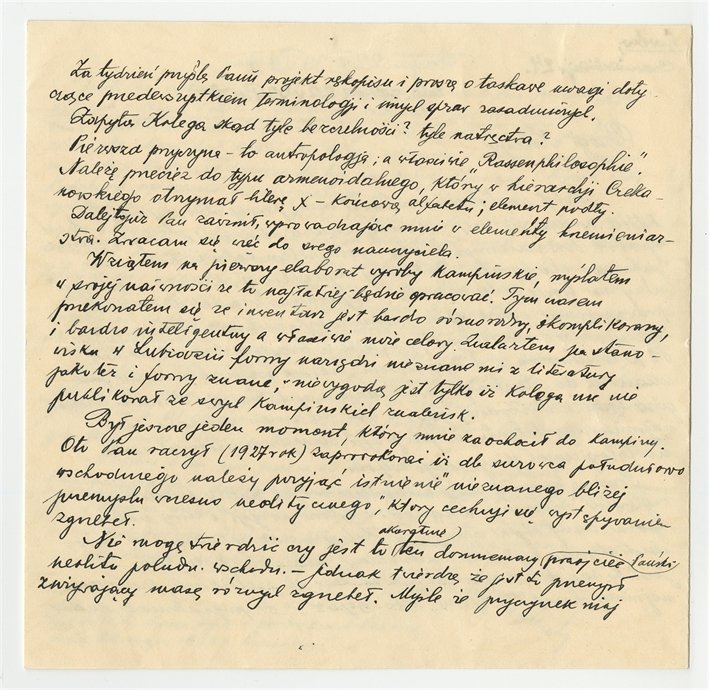 Za tydzień prześlę Panu projekt rękopisu i proszę o łaskawe uwagi doty-
czące przedewszystkiem terminologji i innych spraw zasadniczych.
Zapyta Kolega skąd tyle bezczelności? tyle natręctwa?
Pierwsza przyczyna - to antropologja; a właściwie "Rassenphilosophie".
Należę przecież do typu armenoidalnego, który w hierarchji Czeka-
nowskiego otrzymał literę X - końcową alfabetu; element podły.
Dalej Pan zawinił, wprowadzając mnie w elementy krzemieniar-
stwa. Zwracam się więc do swego nauczyciela.
Wziąłem na pierwszy elaborat wyroby Kampińskie, myślałem
w swojej naiwności że to najłatwiej będzie opracować. Tymczasem
przekonałem się że inwentarz jest bardo różnorodny, skomplikowany,
i bardzo inteligentny a właściwie celowy. Znalazłem na stano-
wisku w formy narzędzi nieznane mi z literatury
jakoteż i formy znane, niewygodą jest tylko iż Kolega nic nie
publikował ze swych Kampińskich znalezisk.
Był jeszcze jeden moment, który mnie zachocił do Kampiny.
Oto Pan raczył (1927 rok) iż dla surowca południowo
wschodniego należy przyjąć istnienie "nieznanego bliżej
przemysłu wczesno neolitycznego", który cechuje się występywaniem
zgrzebeł.
Nie mogę twierdzić czy jest to ten domniemany
neolitu połudn. wschodn. - jednak twierdzę że jest to przemysł
zawierający masę różnych zgrzebeł. Myślę że przyczynek mój